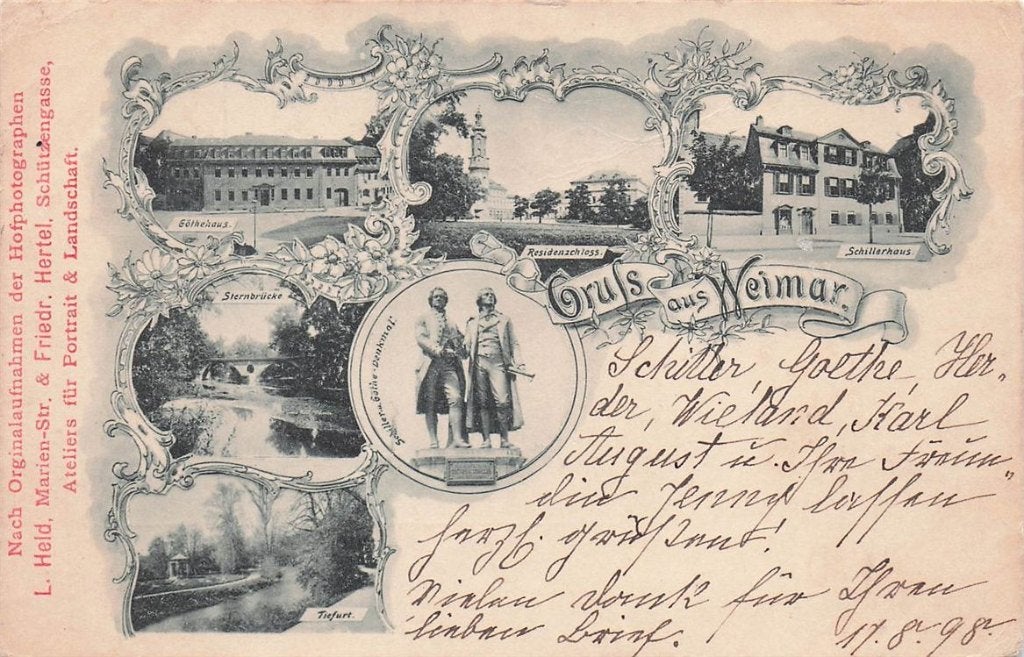 Nach Orginalaufnahmen der Hofphotographen
L. Held, Marien-Str. & Friedr. Hertel, Schützengasse,
Ateliers für Portrait & Landschaft.
Göthehaus.
Residenzschloss.
Schillerhaus
Sternbrücke
Schiller u. Göthe-Denkmal.
Gruss aus Weimar.
Tiefurt.
Schiller, Goethe, Her-
der, Wieland, Karl
August u. Ihre Freun-
din Jenny lassen
herzl. grüßend!
Vielen Dank für Ihren
lieben Brief.
17. 8. 98.